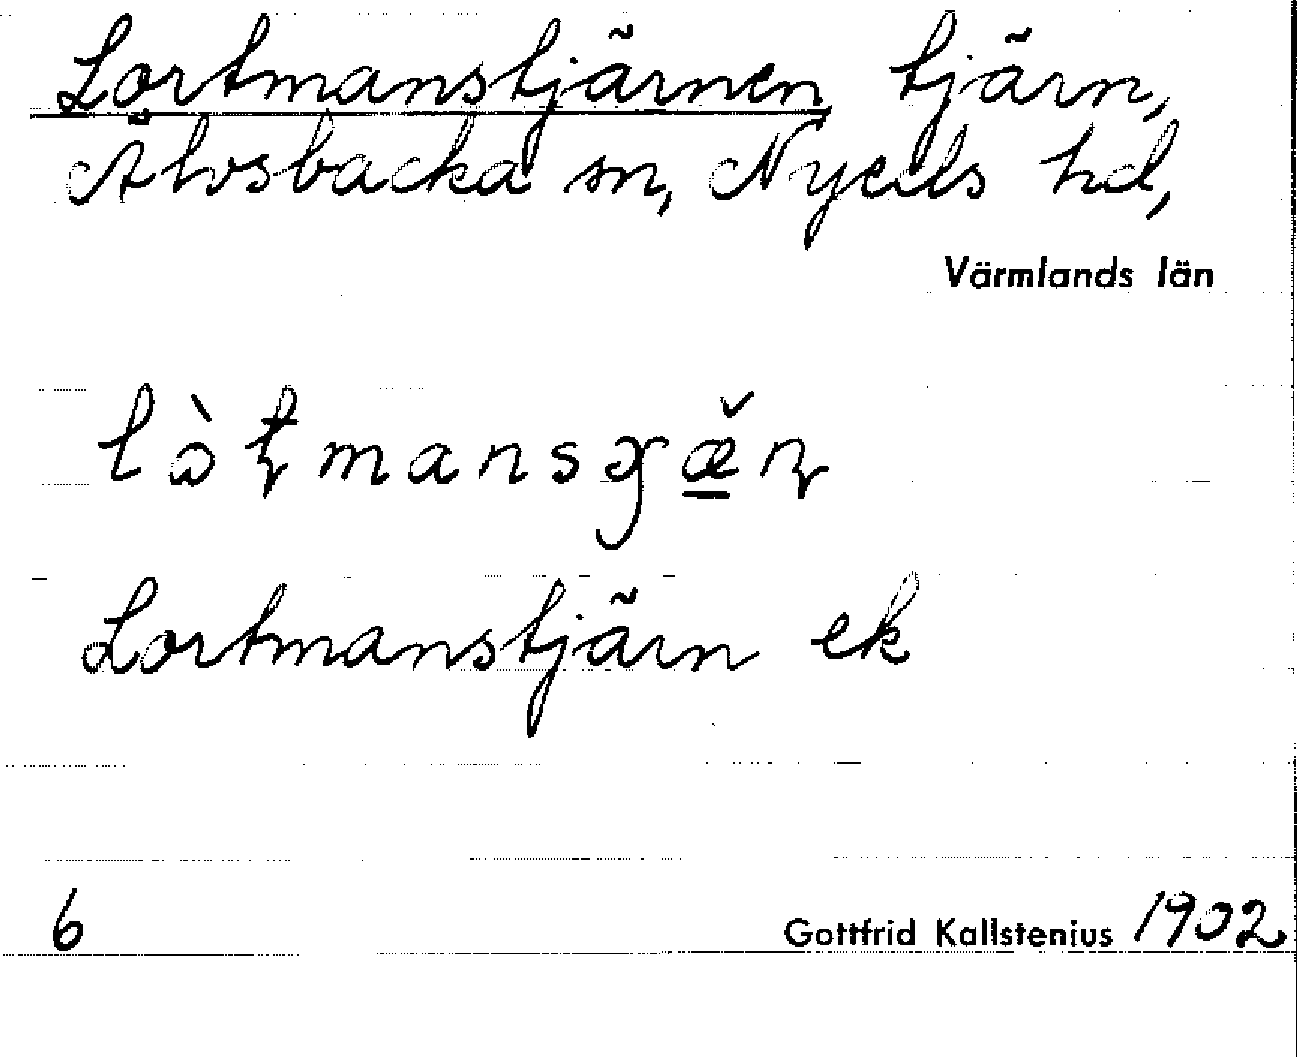 Lortmanstjärnen tjärn,
Älvsbacka sn, Nyeds hd,
Värmlands län
Lortmanstjärn ek
6 Gottfrid Kallstenius 1902